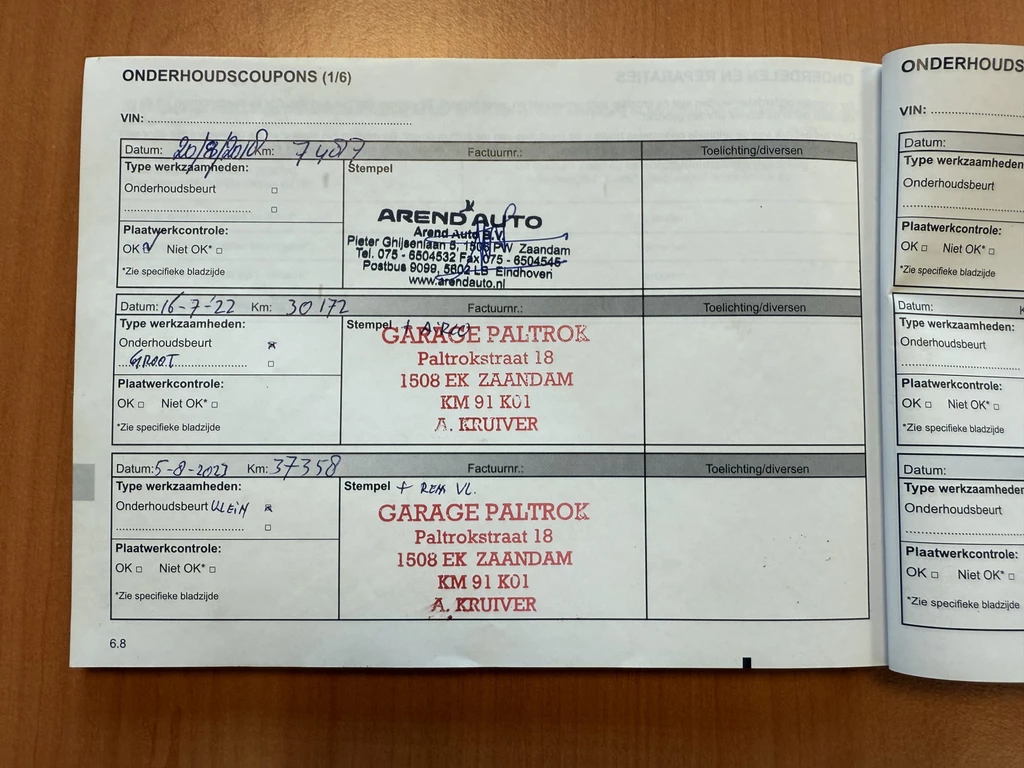 ONDERHOUDSCOUPONS (1/6)
VIN:
Datum: Km: Factuurnr.: Toelichting/diversen
Type werkzaamheden:
Onderhoudsbeurt
Plaatwerkcontrole:
OK Niet OK*
*Zie specifieke bladzijde
Stempel
AREND AUTO
Arend Auto B.V.
Pieter Ghijsenlaan 5, 1506 PW Zaandam
Tel. 075 - 6504532 Fax 075 - 6504545
Postbus 9099, 5602 LB Eindhoven
www.arendauto.nl
Datum: 16-7-22 Km: 30172 Factuurnr.: Toelichting/diversen
Type werkzaamheden:
Onderhoudsbeurt
GROOT
Plaatwerkcontrole:
OK Niet OK*
*Zie specifieke bladzijde
Stempel + AIRCO
GARAGE PALTROK
Paltrokstraat 18
1508 EK ZAANDAM
KM 91 K01
A. KRUIVER
Datum: 5-8-2023 Km: 37358 Factuurnr.: Toelichting/diversen
Type werkzaamheden:
Onderhoudsbeurt KLEIN
Plaatwerkcontrole:
OK Niet OK*
*Zie specifieke bladzijde
Stempel + REM VL.
GARAGE PALTROK
Paltrokstraat 18
1508 EK ZAANDAM
KM 91 K01
A. KRUIVER
6.8
ONDERHOUDS
VIN:
Datum:
Type werkzaamheden
Onderhoudsbeurt
Plaatwerkcontrole:
OK Niet OK*
*Zie specifieke bladzijde
Datum: K
Type werkzaamheden:
Onderhoudsbeurt
Plaatwerkcontrole:
OK Niet OK*
*Zie specifieke bladzijde
Datum:
Type werkzaamheden
Onderhoudsbeurt
Plaatwerkcontrole:
OK Niet OK*
*Zie specifieke bladzijde